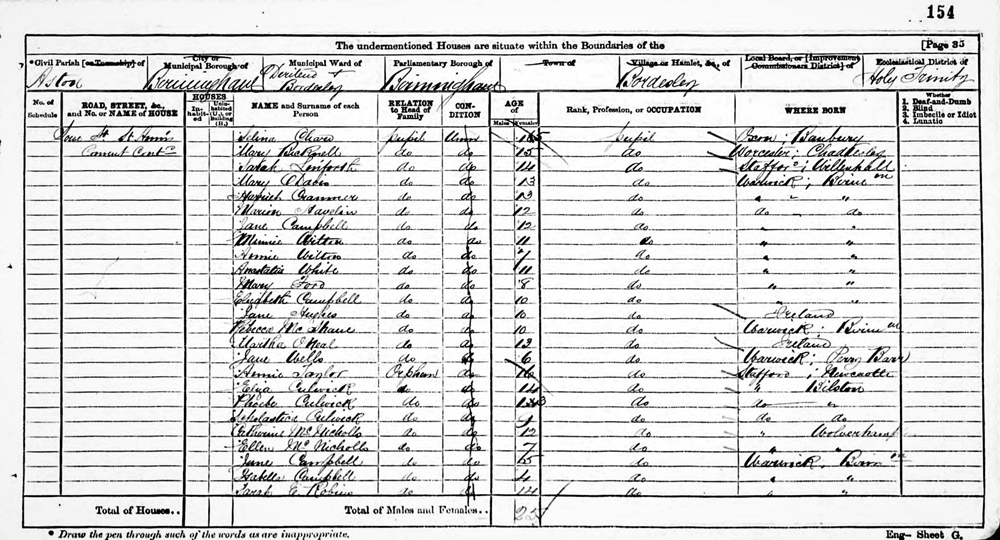 154
The undermentioned Houses are situate within the Boundaries of the [Page 35
*Civil Parish [or Township] of City or Municipal Borough of Municipal Ward of Parliamentary Borough of Town of Village or Hamlet, &c., of Local Board, or [Improvement Commissioners District] of Ecclesiastical District of
Aston Birmingham Deritend + Bordesley Birmingham Bordesley Holy Trinity
No. of Schedule ROAD, STREET, &c., and No. or NAME of HOUSE HOUSES Inhabited Uninhabited (U.), or Building (B.) NAME and Surname of each Person RELATION to Head of Family CONDITION AGE of Males Females Rank, Profession, or OCCUPATION WHERE BORN Whether 1. Deaf-and-Dumb 2. Blind 3. Imbecile or Idiot 4. Lunatic
St. Selina Chard Pupil Unm 15 pupil Banbury
Mary do do 15 do Worcester;
Sarah do do 14 do Stafford; Willenhall
Mary do do 13 do Warwick; Birm
Harriett Cranmer do do 13 do " "
Marion do do 12 do do do
Jane Campbell do do 12 do " "
Minnie Wilton do do 11 do " "
Annie Wilton do do 7 do " "
Anastatia White do do 11 do " "
Mary Ford do do 8 do " "
Elizabeth Campbell do do 10 do " "
Jane Hughes do do 10 do Ireland
Rebecca McShane do do 10 do Warwick; Birm
Martha O'Neal do do 13 do Ireland
Jane Wells do do 6 do Warwick; Perry Barr
Annie Taylor Orphan do 16 do Stafford; Newcastle
Eliza Culwick do do 14 do " Bilston
Phoebe Culwick do do 13 do do "
Scholastica Culwick do do 9 do do do
Catherine McNicholls do do 12 do " Wolverhamp
Ellen McNicholls do do 7 do " "
June Campbell do do 5 do Warwick, Birm
Isabella Campbell do do 4 do " "
Sarah E. Robins do do 14 do " "
Total of Houses.. Total of Males and Females.. 25
* Draw the pen through such of the words as are inappropriate. Eng— Sheet G.